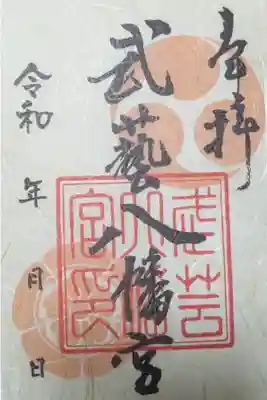 奉拝
武藝八幡宮
令和 年 月 日
武芸八幡宮印